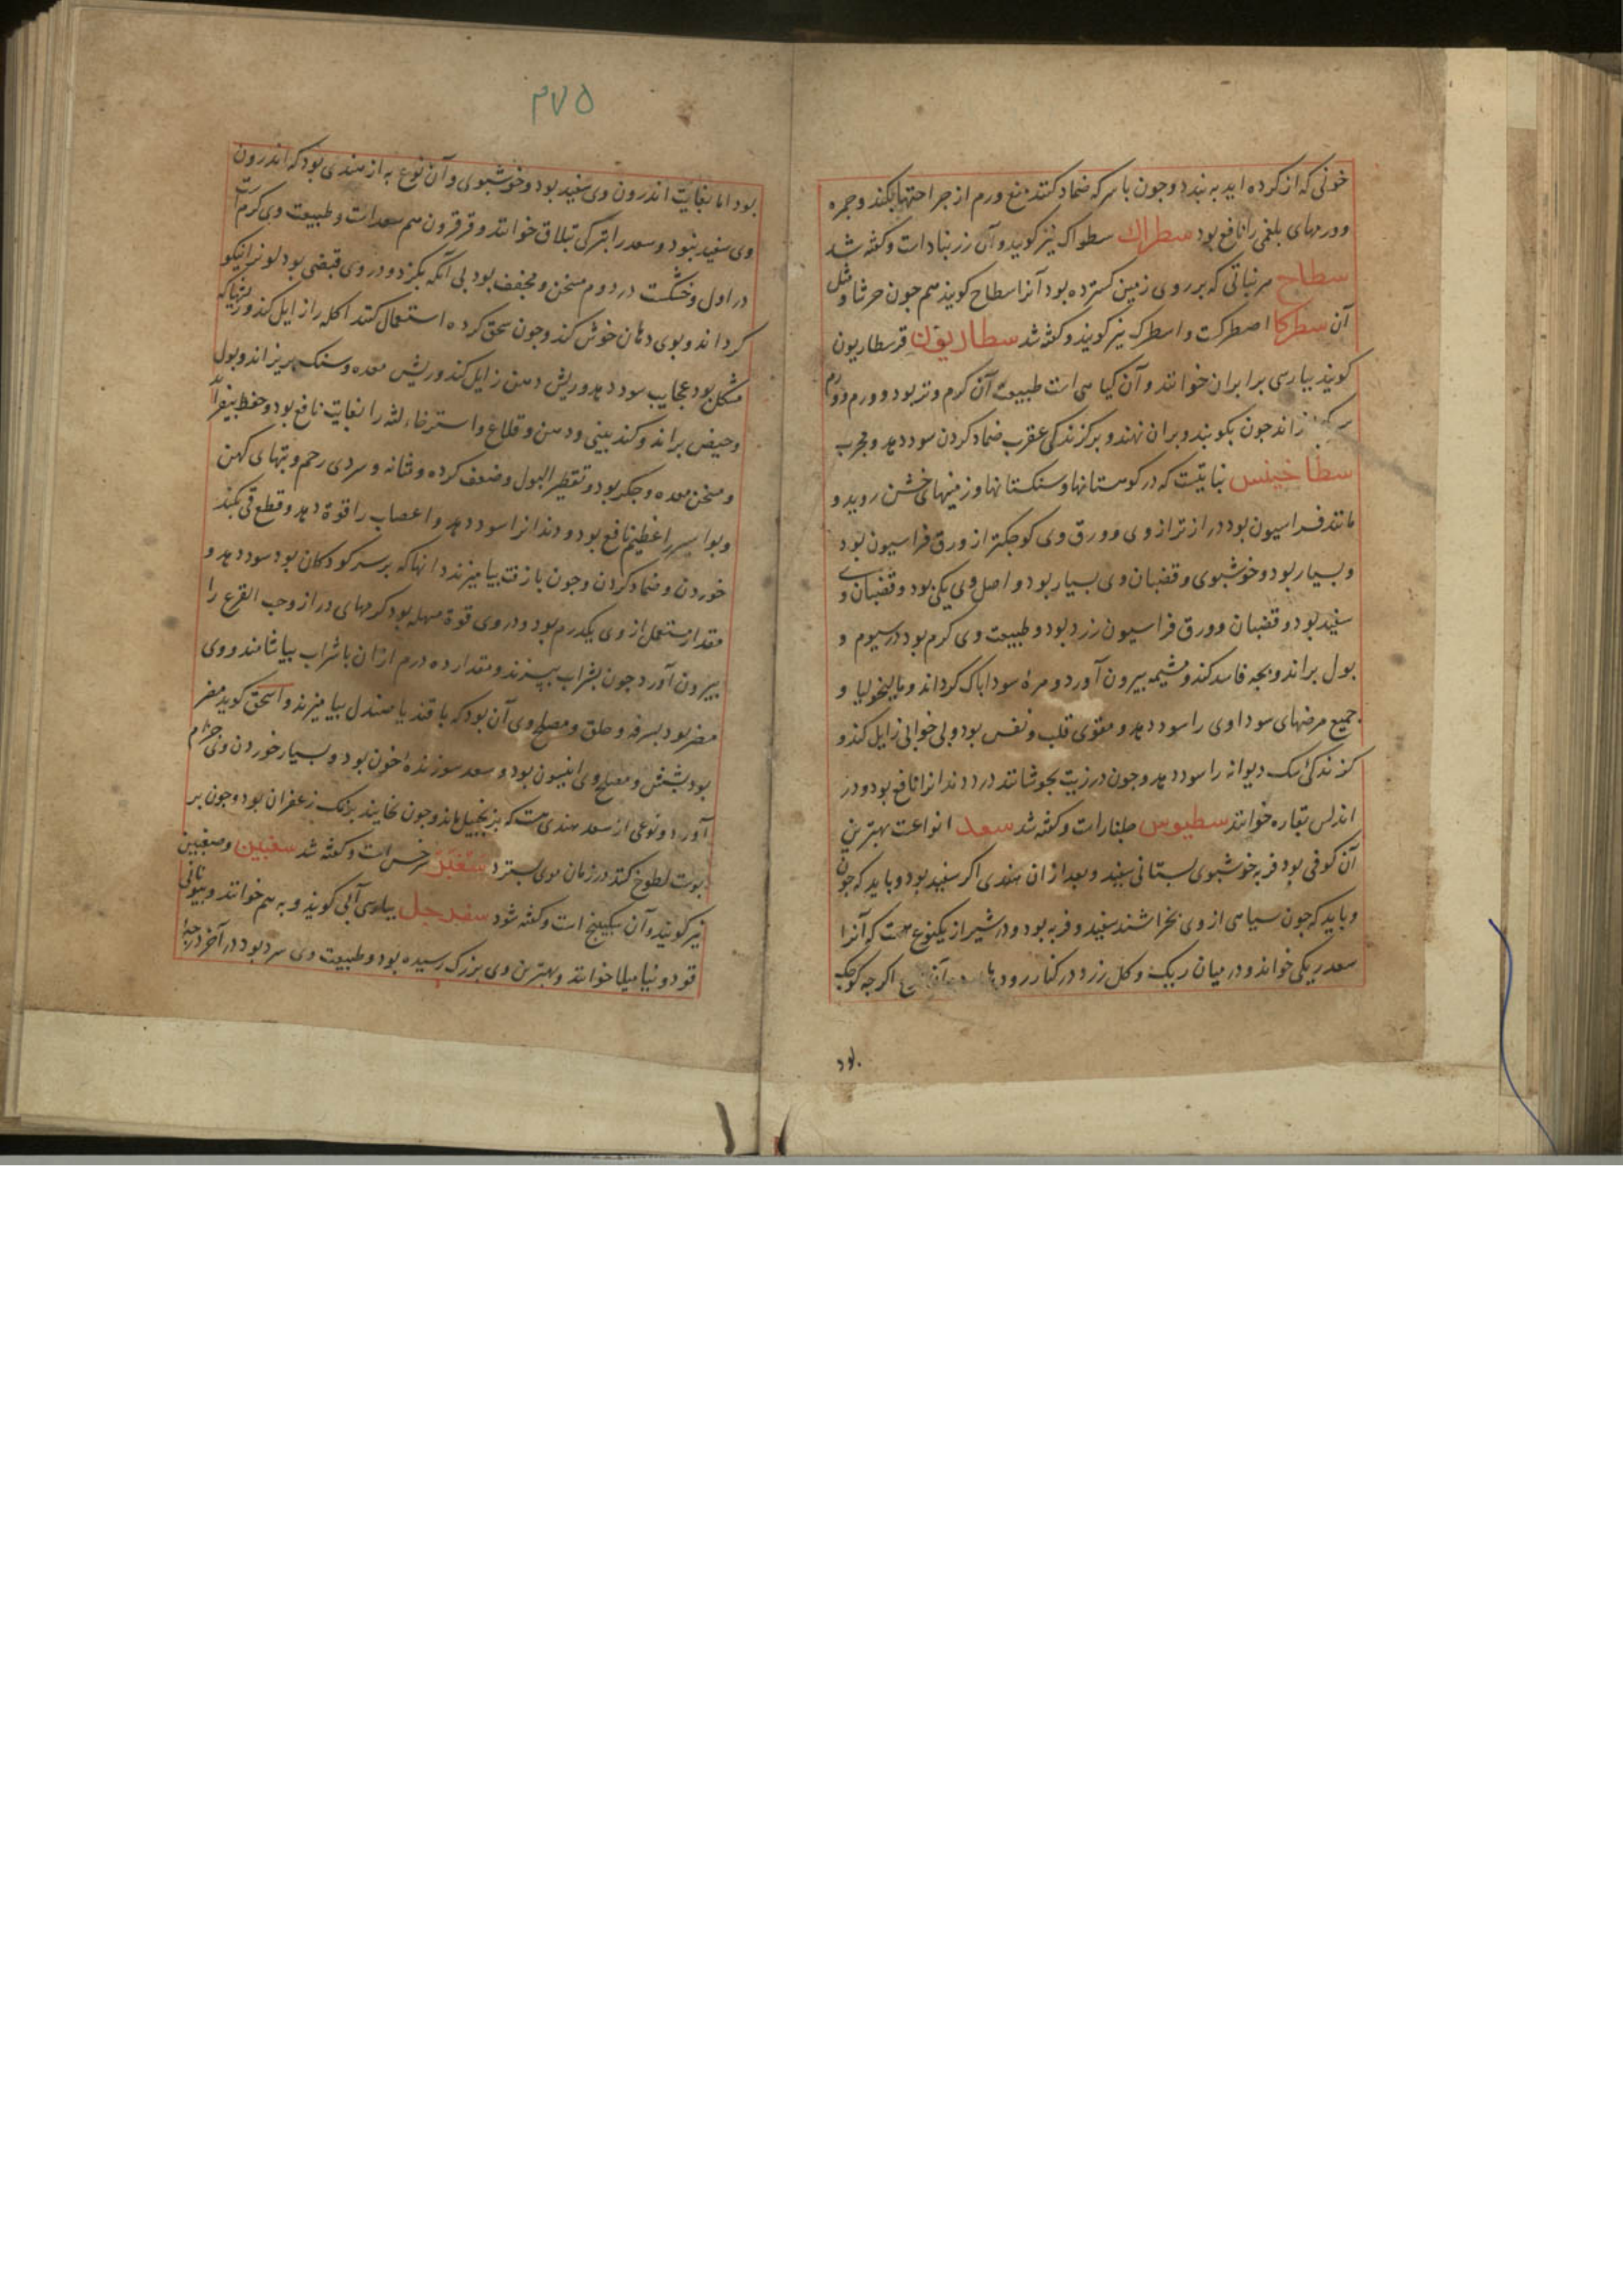 خونی که از کرده اید به بندد وجون با سرکه ضماد کنند منع ورم از جراحتها بکند وجمره
وورمهای بلغمی را نافع بود سطراك سطواک نیز کویند وآن زرنبادات وکفته شد
سطاح هر نباتی که بر روی زمین کسترده بود آنرا سطاح کویند همچون حرشا ومثل
آن سطرکا اصطرکت واسطرک نیز کویند وکفته شد سطاریون قرسطاریون
کویند بپارسی برابران خوانند وآن کیاهی است طبیعت آن کرم وتر بود وورم
را ند جون بکوبند وبران نهند وبر کزندکی عقرب ضماد کردن سود دهد ومجرب
سطاخینس نباتیست که در کوهستانها وسنکستانها وزمینهای خشن روید و
مانند فراسیون بود دراز تر ازوی وورق وی کوجکتر از ورق فراسیون بود
وبسیار بود وخوشبوی وقضبان وی بسیار بود واصل وی یکی بود وقضبان وی
سفید بود وقضبان وورق فراسیون زرد بود وطبیعت وی کرم بود در سیوم و
بول براند وبجه فاسد کند ومشیمه بیرون آورد ومرهٔ سودا پاک کرداند ومالیخولیا و
جمیع مرضهای سوداوی را سود دهد ومقوی قلب ونفس بود وبی خوابی زایل کند و
کزندکی سک دیوانه را سود دهد وجون در زیت بجوشانند درد دندانرا نافع بود ودر
اندلس بقاره خوانند سطیوس جلنارات وکفته شد سعد انواعت بهترین
آن کوفی بود فربه خوشبوی بستانی سفید وبعد ازان هندی اکر سفید بود وباید که جون
وباید که جون سیاهی ازوی بخراشند سفید وفربه بود ودر شیراز یکنوع هست که آنرا
سعد ریکی خوانند ودر میان ریک وکل زرد در کنار رود اکر جه کوجک
بود
۲۷۵
بود اما بغایت اندرون وی سفید بود وخوشبوی وآن نوع به از هندی بود که اندرون
وی سفید نبود وسعد را بترکی تبلاق خوانند وقرقرون هم سعدات وطبیعت وی کرم است
در اول وخشکست در دوم مسخن ومجفف بود بی آنکه بکزد ودر وی قبضی بود لونرا نیکو
کرداند وبوی دهان خوش کند وجون سحق کرده استعمال کنند اکله را زایل کند وریشهاکه
مشکل بود عجایب سود دهد وریش دهن زایل کند وریش معده وسنک بریزاند وبول
وحیض براند وکند بینی ودهن وقلاع واسترخاء لثه را بغایت نافع بود وحفظ بیفزاید
ومسخن معده وجکر بود وتقطیر البول وضعف کرده ومثانه وسردی رحم وتبهای کهن
وبواسیر را عظیم نافع بود ودندانرا سود دهد واعصاب را قوة دهد وقطع قی بکند
خوردن وضماد کردن وجون با زفت بیامیزند دانهاکه بر سر کودکان بود سود دهد و
مقدار مستعمل ازوی یکدرم بود ودر وی قوة مسهله بود کرمهای دراز وحب القرع را
بیرون آورد جون بشراب بپزند ومقدار ده درم ازان با شراب بیاشامند ووی
مضر بود بسرفه وحلق ومصلح وی آن بود که با قند یا صندل بیامیزند واسحق کوید مضر
بود بشش ومصلح وی انیسون بود وسعد سوزندهٔ خون بود وبسیار خوردن وی جذام
آورد ونوعی از سعد هندی هست که بزنجبیل ماند وجون بخایند برنک زعفران بود وجون بر
پوست لطوخ کنند در زمان موی بسترد سعبر سرخس است وکفته شد سفبین وصغبین
نیز کویند وآن سکبینج است وکفته شود سفرجل بپارسی آبی کویند وبه هم خوانند وبیونانی
قودونیا میلا خوانند وبهترین وی بزرک رسیده بود وطبیعت وی سرد بود در آخر درجه